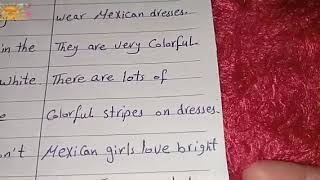 wear Mexican dresses.
in the They are very Colorful.
White. There are lots of
Colorful stripes on dresses.
n't Mexican girls love bright